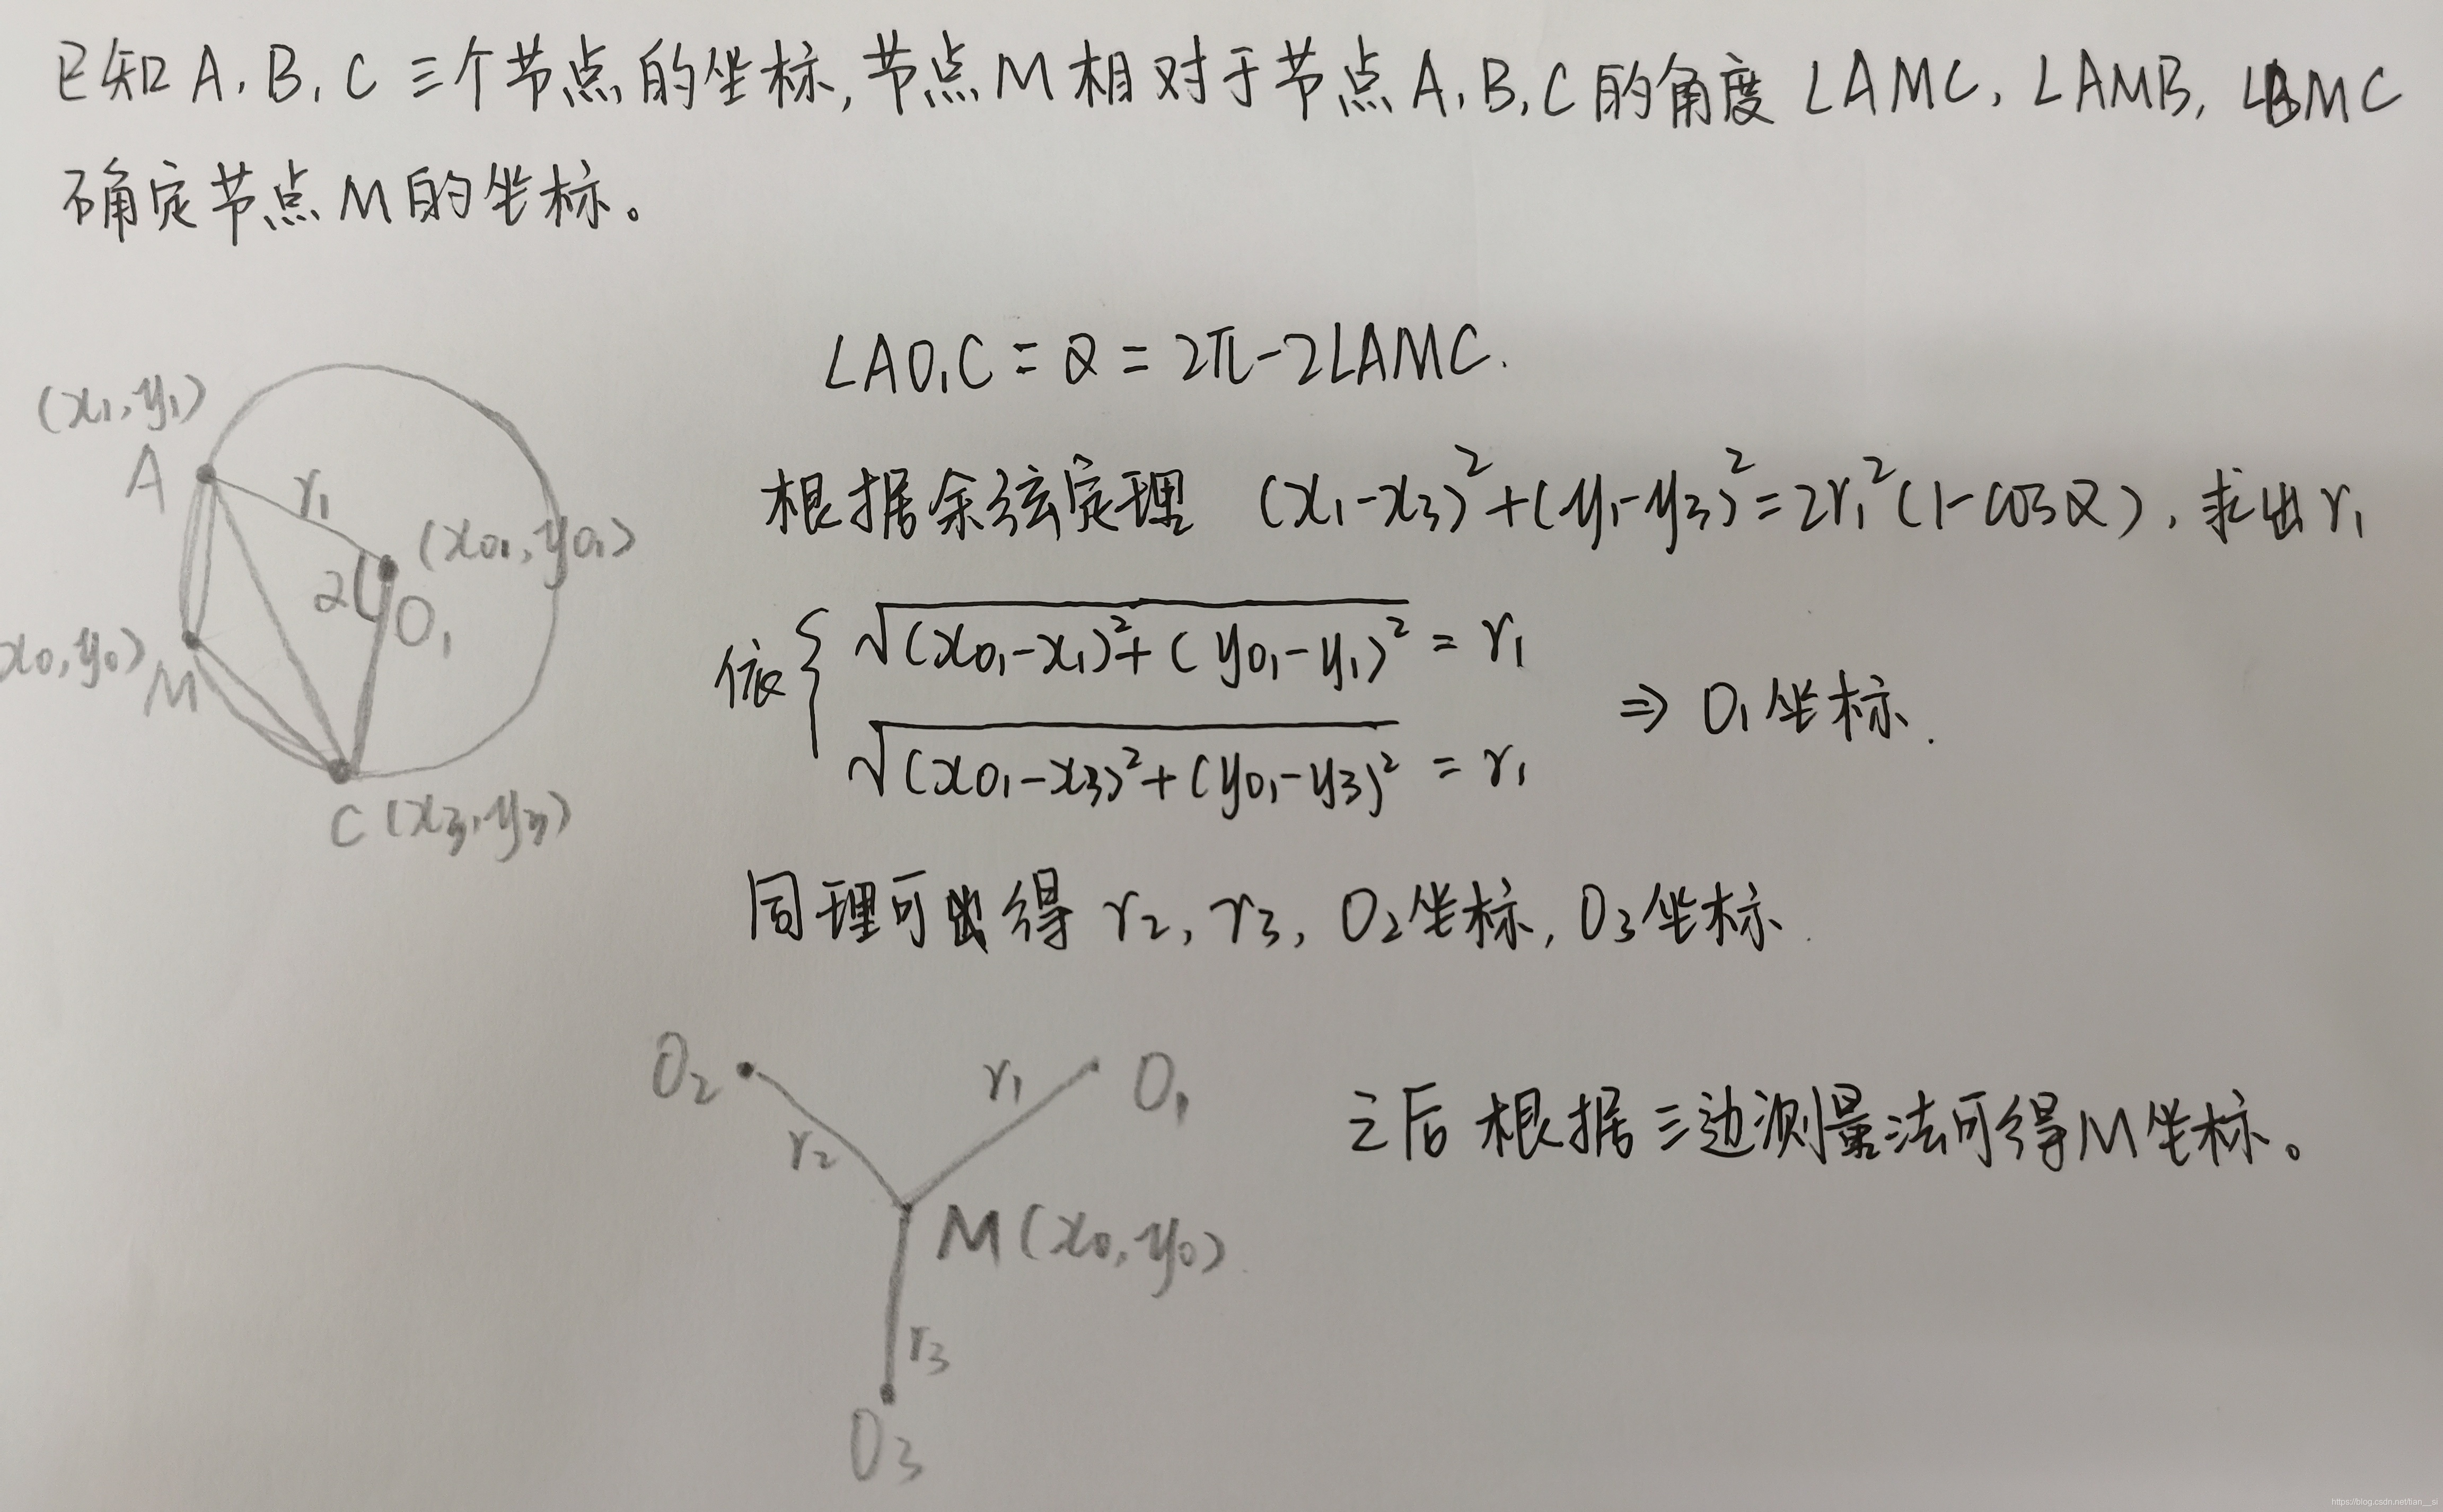 已知 A, B, C 三个节点的坐标,节点M相对于节点A, B, C的角度 ∠AMC, ∠AMB, ∠BMC
确定节点M的坐标。
∠AO₁C = α = 2π-2∠AMC.
(x₁,y₁)
A
r₁
(x₀₁,y₀₁)
α
O₁
(x₀,y₀)
M
C (x₃,y₃)
根据余弦定理 (x₁-x₃)²+(y₁-y₃)²=2r₁²(1-cosα), 求出 r₁
依 { √(x₀₁-x₁)²+(y₀₁-y₁)² = r₁
√(x₀₁-x₃)²+(y₀₁-y₃)² = r₁
⇒ O₁坐标.
同理可得 r₂, r₃, O₂坐标, O₃坐标.
O₂
r₁
O₁
r₂
M(x₀,y₀)
r₃
O₃
之后 根据三边测量法可得M坐标。
https://blog.csdn.net/tian__si